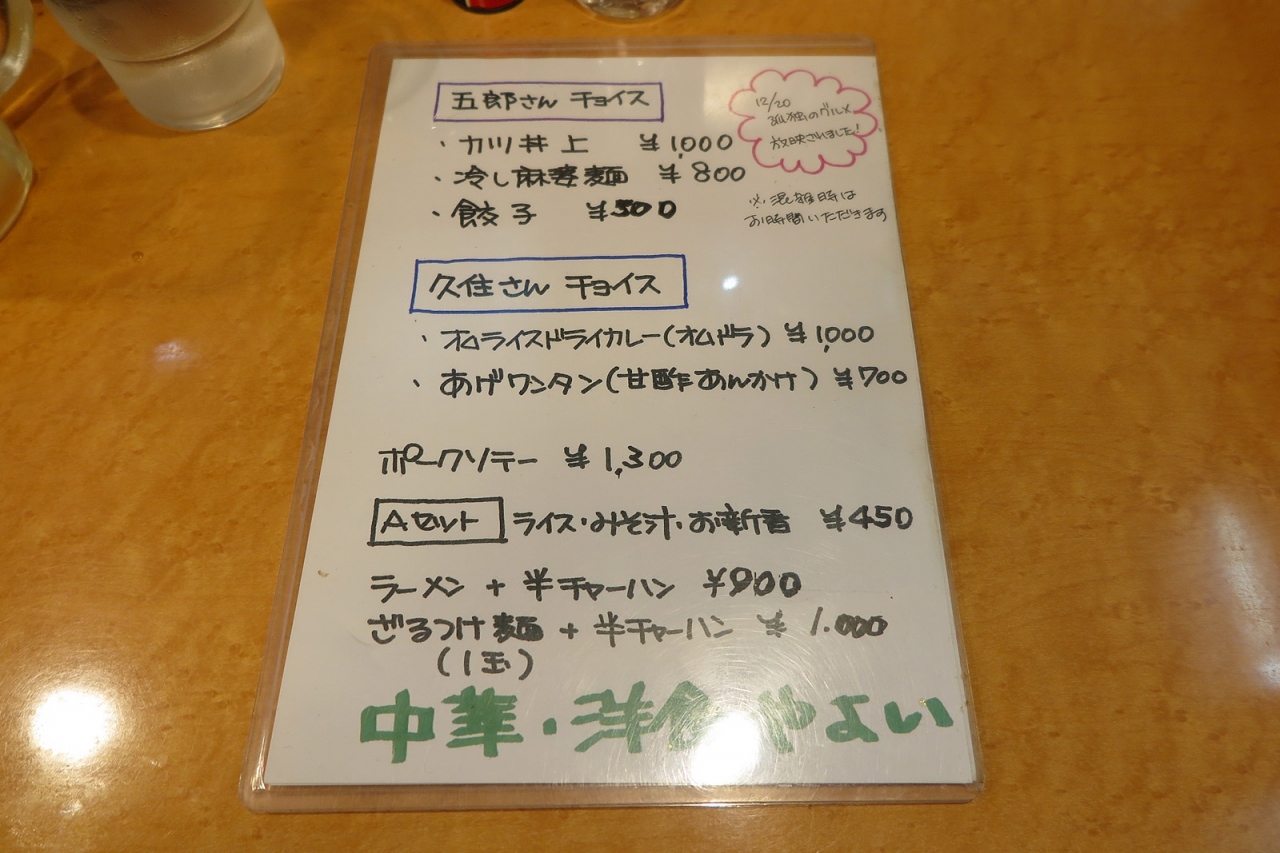 五郎さん チョイス
12/20
孤独のグルメ
放映されました!
・カツ丼上 ¥1,000
・冷し麻婆麺 ¥800
・餃子 ¥500
※混雑時は
お時間いただきます
久住さん チョイス
・オムライスドライカレー(オムドラ) ¥1,000
・あげワンタン(甘酢あんかけ) ¥700
ポークソテー ¥1,300
Aセット ライス・みそ汁・お新香 ¥450
ラーメン + 半チャーハン ¥900
ざるつけ麺 + 半チャーハン ¥1.000
(1玉)
中華・洋食やよい